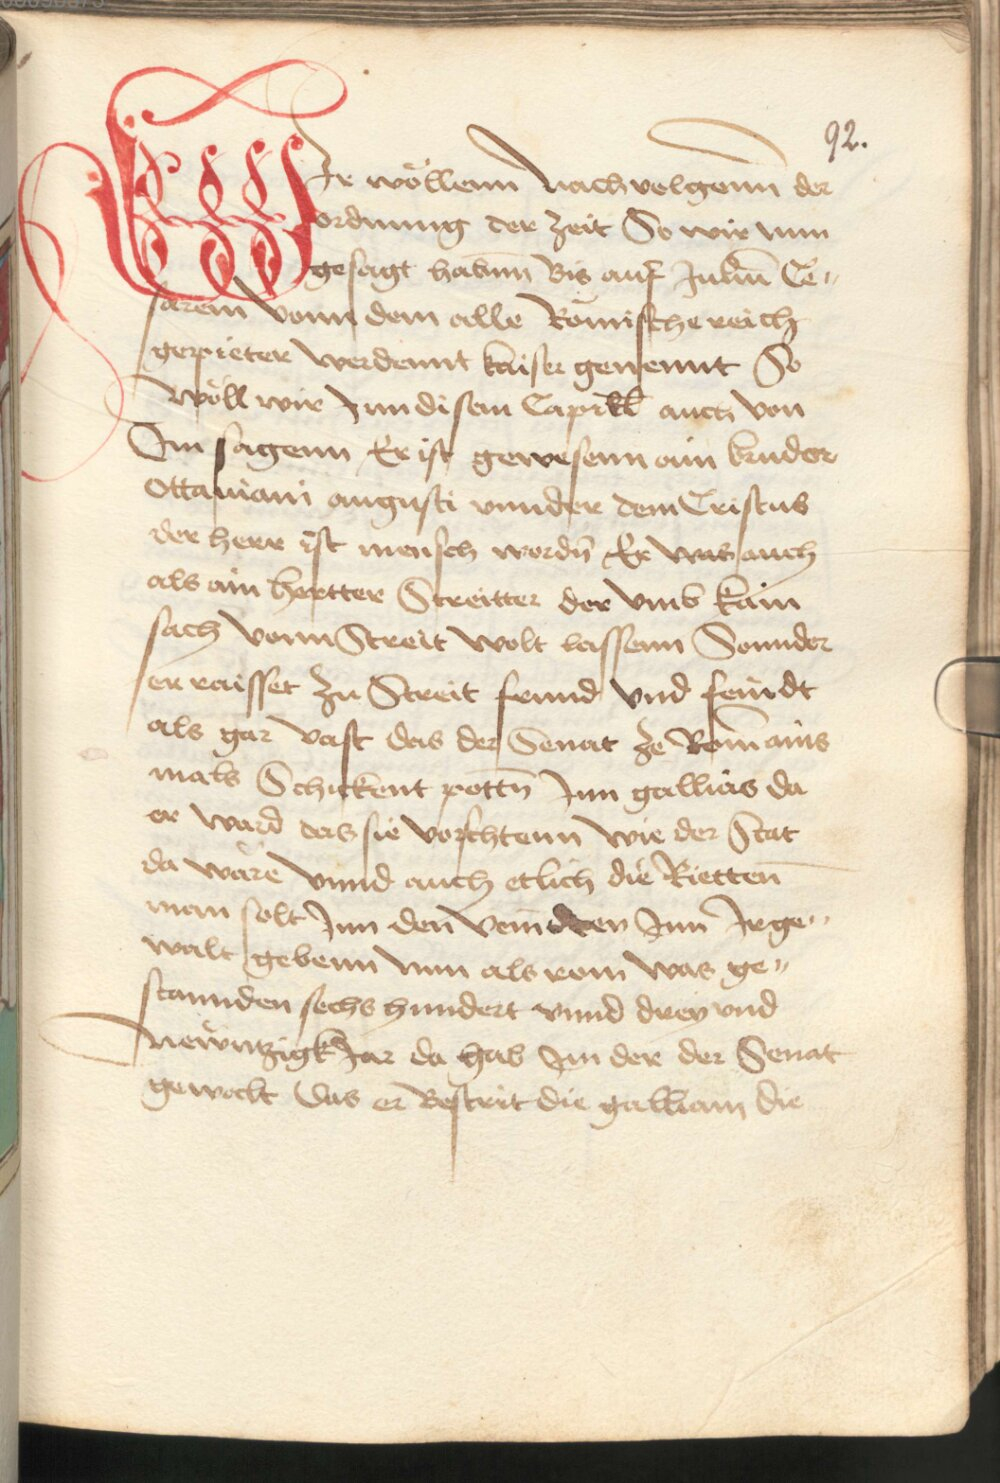 92.
WIr wöllenn Nachvolgenn der
ordnung der Zeit So wir nun
gesagt habenn Bis auf Julium Ce„
sarem Vonn dem alle Römische reich
gepieter Werdennt kaiser genennt So
Wöll wir Inn disem Capitl auch von
Im sagenn Er ist gewesenn ain bruder
Ottaviani augusti vnnder dem Cristus
der herr ist mensch wordn̄ Er was auch
als ain hertter Streitter der vmb kain
sach Vonn Streit Wolt lassenn Sonnder
er raisset Zu Streit frund Vnd feindt
als gar vast das der Senat Ze Rom ains
mals Schickent pottn̄ Inn gallias da
er Ward das sie vorschtenn Wie der Stat
da Wäre Vnnd auch etlich die Riettenn̄
man solt Inn den Veindten Inn Ir ge„
walt gebenn Nun als rom Was ge„
stannden sechs hundert vnnd drey vnd
Newntzigk Jar da hab Im der der Senat
gewolt Das er Bestrit die galliam die